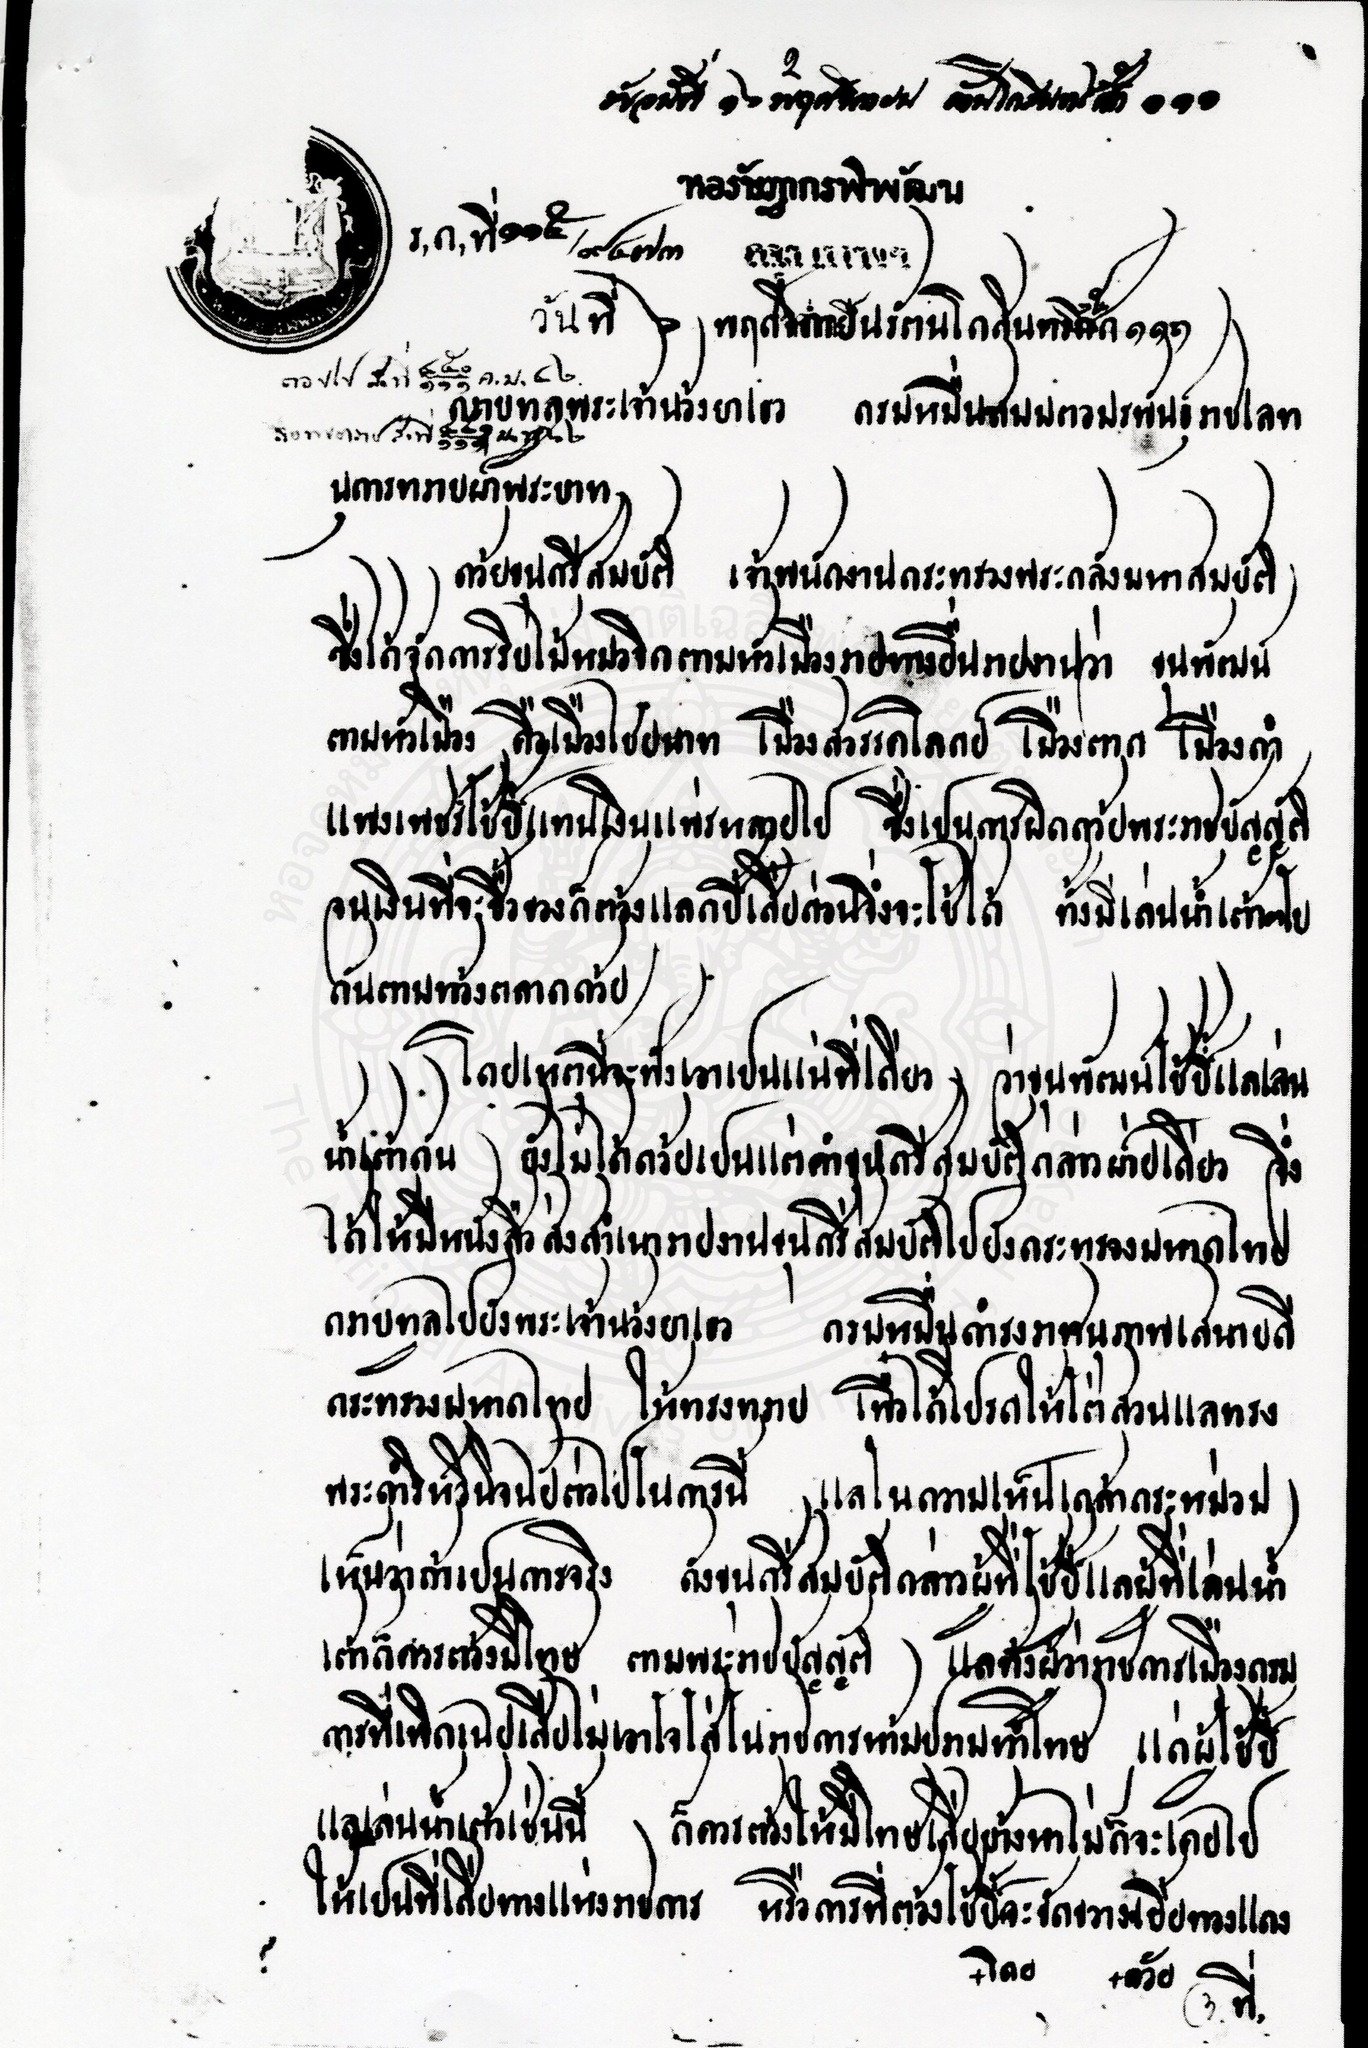 หอรัษฎากรพิพัฒน
ร,ก,ที่ ๑๑๕
วันที่ ๖ พฤศจิกายน รัตนโกสินทรศก ๑๑๑
กราบทูลพระเจ้าน้องยาเธอ กรมหมื่นสมมตอมรพันธุ์ราชเลขา
นุการทราบฝ่าพระบาท
ด้วยขุนศรีสมบัติ เจ้าพนักงานกระทรวงพระคลังมหาสมบัติ
ซึ่งได้จัดการเรี่ยไม้หมอจีดตามหัวเมือง รายงานว่า ขุนพัฒน์
ตามหัวเมือง คือเมืองไชยนาท เมืองสวรรคโลกย์ เมืองตาก เมืองกำ
แพงเพชร์ใช้ปี้แทนเงินแพร่หลายไป ซึ่งเปนการผิดด้วยพระราชบัญญัติ
จนเงินที่จะซื้อของก็ต้องแลกปี้เสียก่อนจึ่งจะใช้ได้ ทั้งมีเล่นน้ำเต้า
กันตามท้องตลาดด้วย
โดยเหตุนี้จะฟังเอาเปนแน่ทีเดียว ว่าขุนพัฒน์ใช้ปี้แลเล่น
น้ำเต้ากัน ยังไม่ได้ด้วยเปนแต่คำขุนศรีสมบัติกล่าวฝ่ายเดียว จึ่ง
ได้ให้มีหนังสือส่งสำเนารายงานขุนศรีสมบัติไปยังกระทรวงมหาดไทย
กราบทูลไปยังพระเจ้าน้องยาเธอ กรมหมื่นดำรงราชานุภาพเสนาบดี
กระทรวงมหาดไทย ให้ทรงทราบ เพื่อได้โปรดให้ไต่สวนแลทรง
พระดำริห์วินิจฉัยต่อไปในการนี้ แลในความเห็นเกล้ากระหม่อม
เห็นว่าถ้าเปนการจริง ดังขุนศรีสมบัติกล่าวผู้ที่ใช้ปี้แลผู้ที่เล่นน้ำ
เต้าก็ควรต้องมีโทษ ตามพระราชบัญญัติ แลทั้งผู้ว่าราชการเมืองกรม
การที่เพิกเฉยเสียไม่เอาใจใส่ในราชการห้ามปรามทำโทษ แก่ผู้ใช้ปี้
แลเล่นน้ำเต้าเช่นนี้ ก็ควรต้องให้มีโทษเสียบ้างหาไม่ก็จะเคยไป
ให้เปนที่เสียทางแห่งราชการ หรือการที่ต้องใช้ปี้จะขัดขวาง
+โดย +ด้วย
๓ ที่,